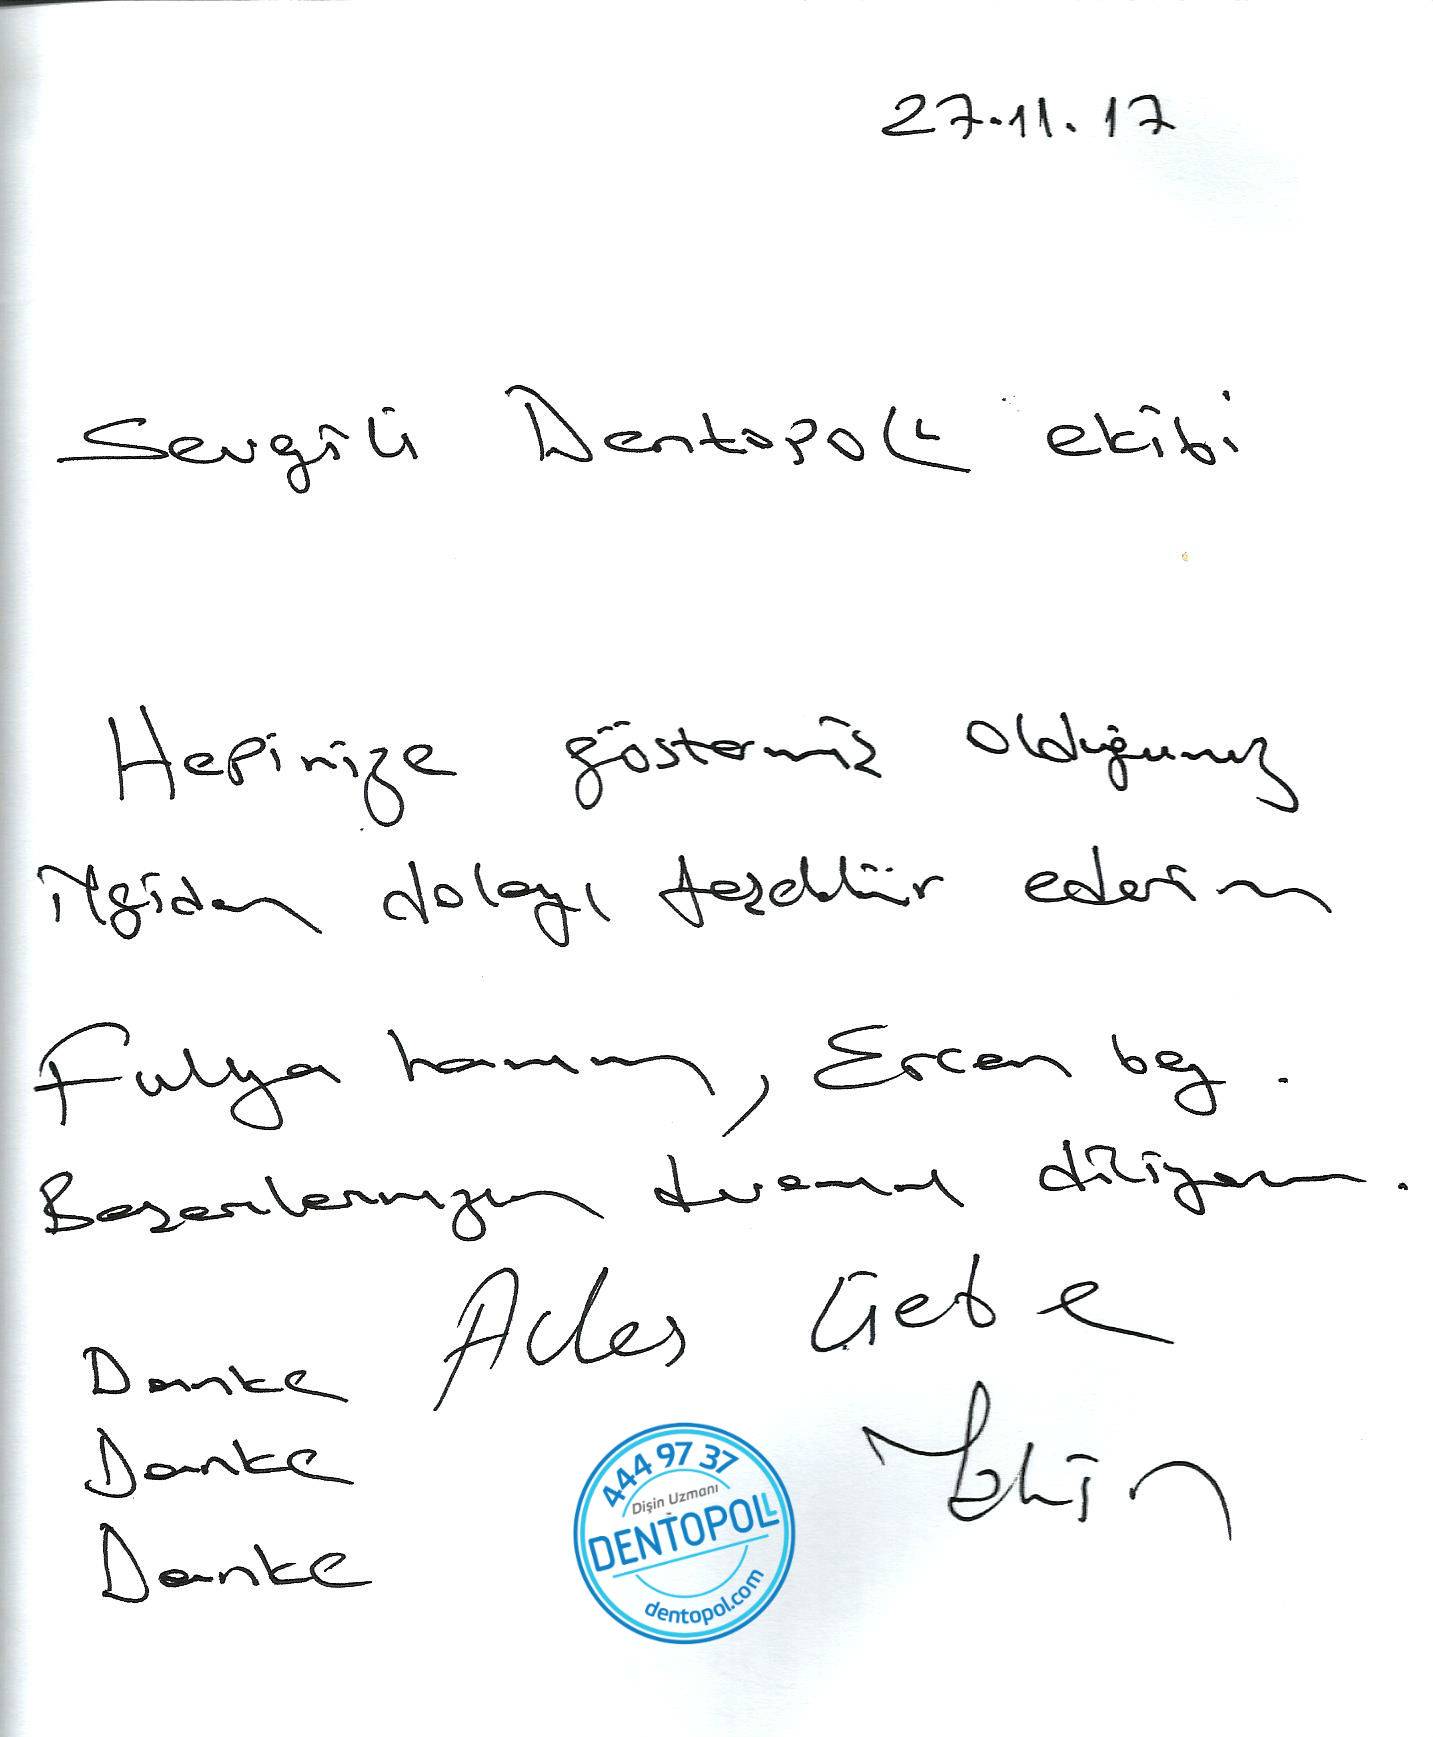 27.11.17
Sevgili Dentopoll ekibi
Hepinize göstermiş olduğunuz
ilgiden dolayı teşekkür ederim
Fulya hanım, Ercan bey.
Başarılarınızın devamını diliyorum.
Alles Gebe
Danke
Danke
Danke
444 97 37
Dişin Uzmanı
DENTOPOLL
dentopol.com